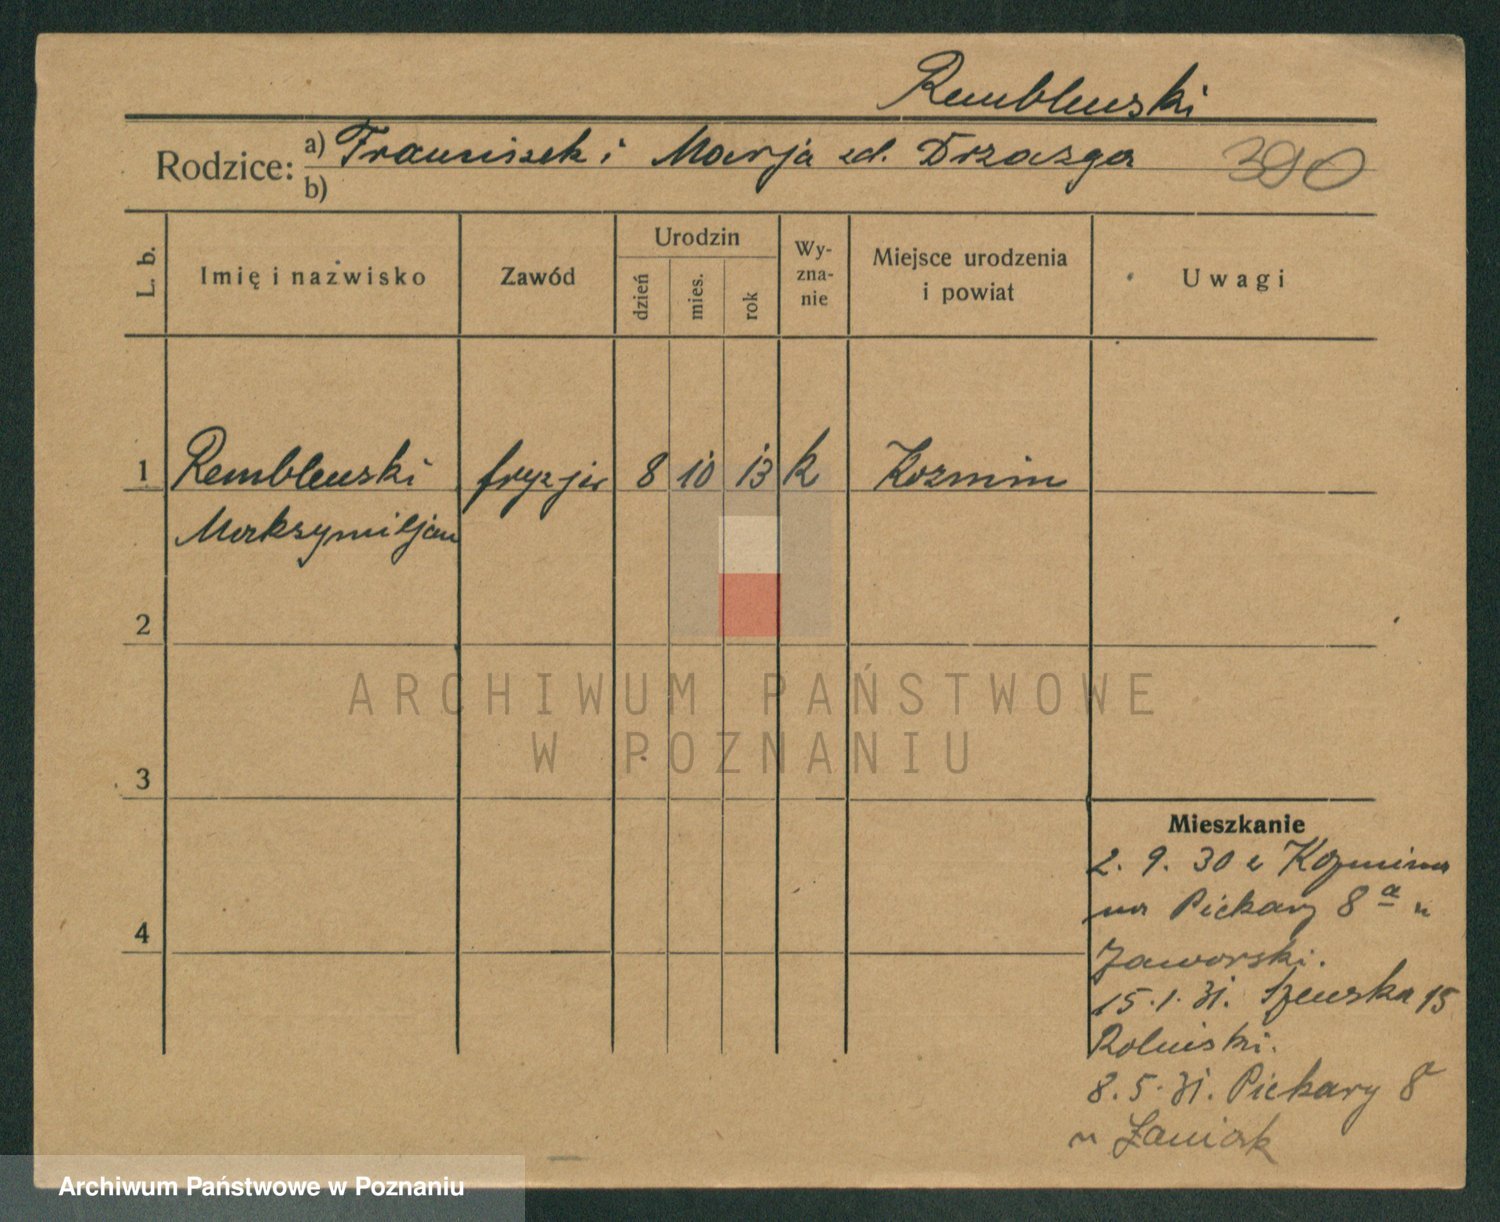 Remblewski
Rodzice: a) Franciszek i Marja zd. Drzazga 390
b)
L. b. Imię i nazwisko Zawód Urodzin dzień mies. rok Wyznanie Miejsce urodzenia i powiat Uwagi
1 Remblewski fryzjer 8 10 13 k Kozmin
Maksymiljan
2
ARCHIWUM PAŃSTWOWE
W POZNANIU
3
Mieszkanie
2. 9. 30 z Kozmina
na Piekary 8 a u
4
Jaworski.
15.1.31. Szewska 15
Rolniski.
8.5.31. Piekary 8
u Zaniak
Archiwum Państwowe w Poznaniu